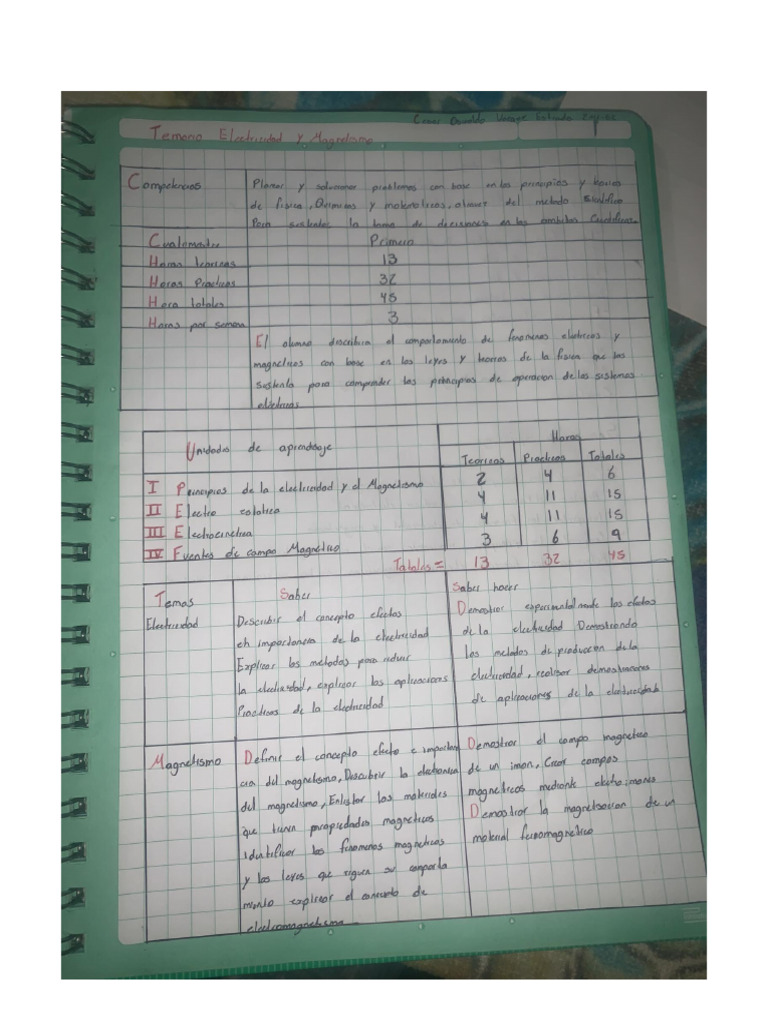 Cesar Osvaldo
Temario Electricidad y Magnetismo
Competencias
Planear y solucionar problemas con base en los principios y
de fisica, Quimicas y matematicas, atraves del metodo Sientifico
Para sustentar la toma de deciciones en los ambitos Cientificos.
Cuatrimestre Primero
Horas teoricas 13
Horas Practicas 32
Hora totales 45
Horas por semana 3
El alumno describira el comportamiento de fenomenos electricos y
magneticos con base en las leyes y teorias de la fisica que las
sustenta para comprender los principios de operacion de los sistemas
electricos
Unidades de aprendizaje Horas
Teoricas Practicas Totales
I Principios de la electricidad y el Magnetismo 2 4 6
II Electro estatica 4 11 15
III Electrocinetica 4 11 15
IV Fuentes de campo Magnetico 3 6 9
Totales = 13 32 45
Temas Saber Saber hacer
Electricidad
Describir el concepto efectos
en importancia de la electricidad
Explicar los metodos para
la electricidad, explicar las aplicaciones
Practicas de la electricidad
Demostrar experimentalmente los efectos
de la electricidad Demostrando
los metodos de produccion de la
electricidad, realizar demostraciones
de aplicaciones de la electricidad
Magnetismo
Definir el concepto efecto e importan
cia del magnetismo, Describir la
del magnetismo, Enlistar los materiales
que tienen propiedades magneticas
identificar los fenomenos magneticos
y las leyes que siguen su comporta
miento explicar el concepto de
electromagnetismo
Demostrar el campo magnetico
de un iman, Crear campos
magneticos mediante electro imanes
Demostrar la magnetizacion de un
material ferromagnetico